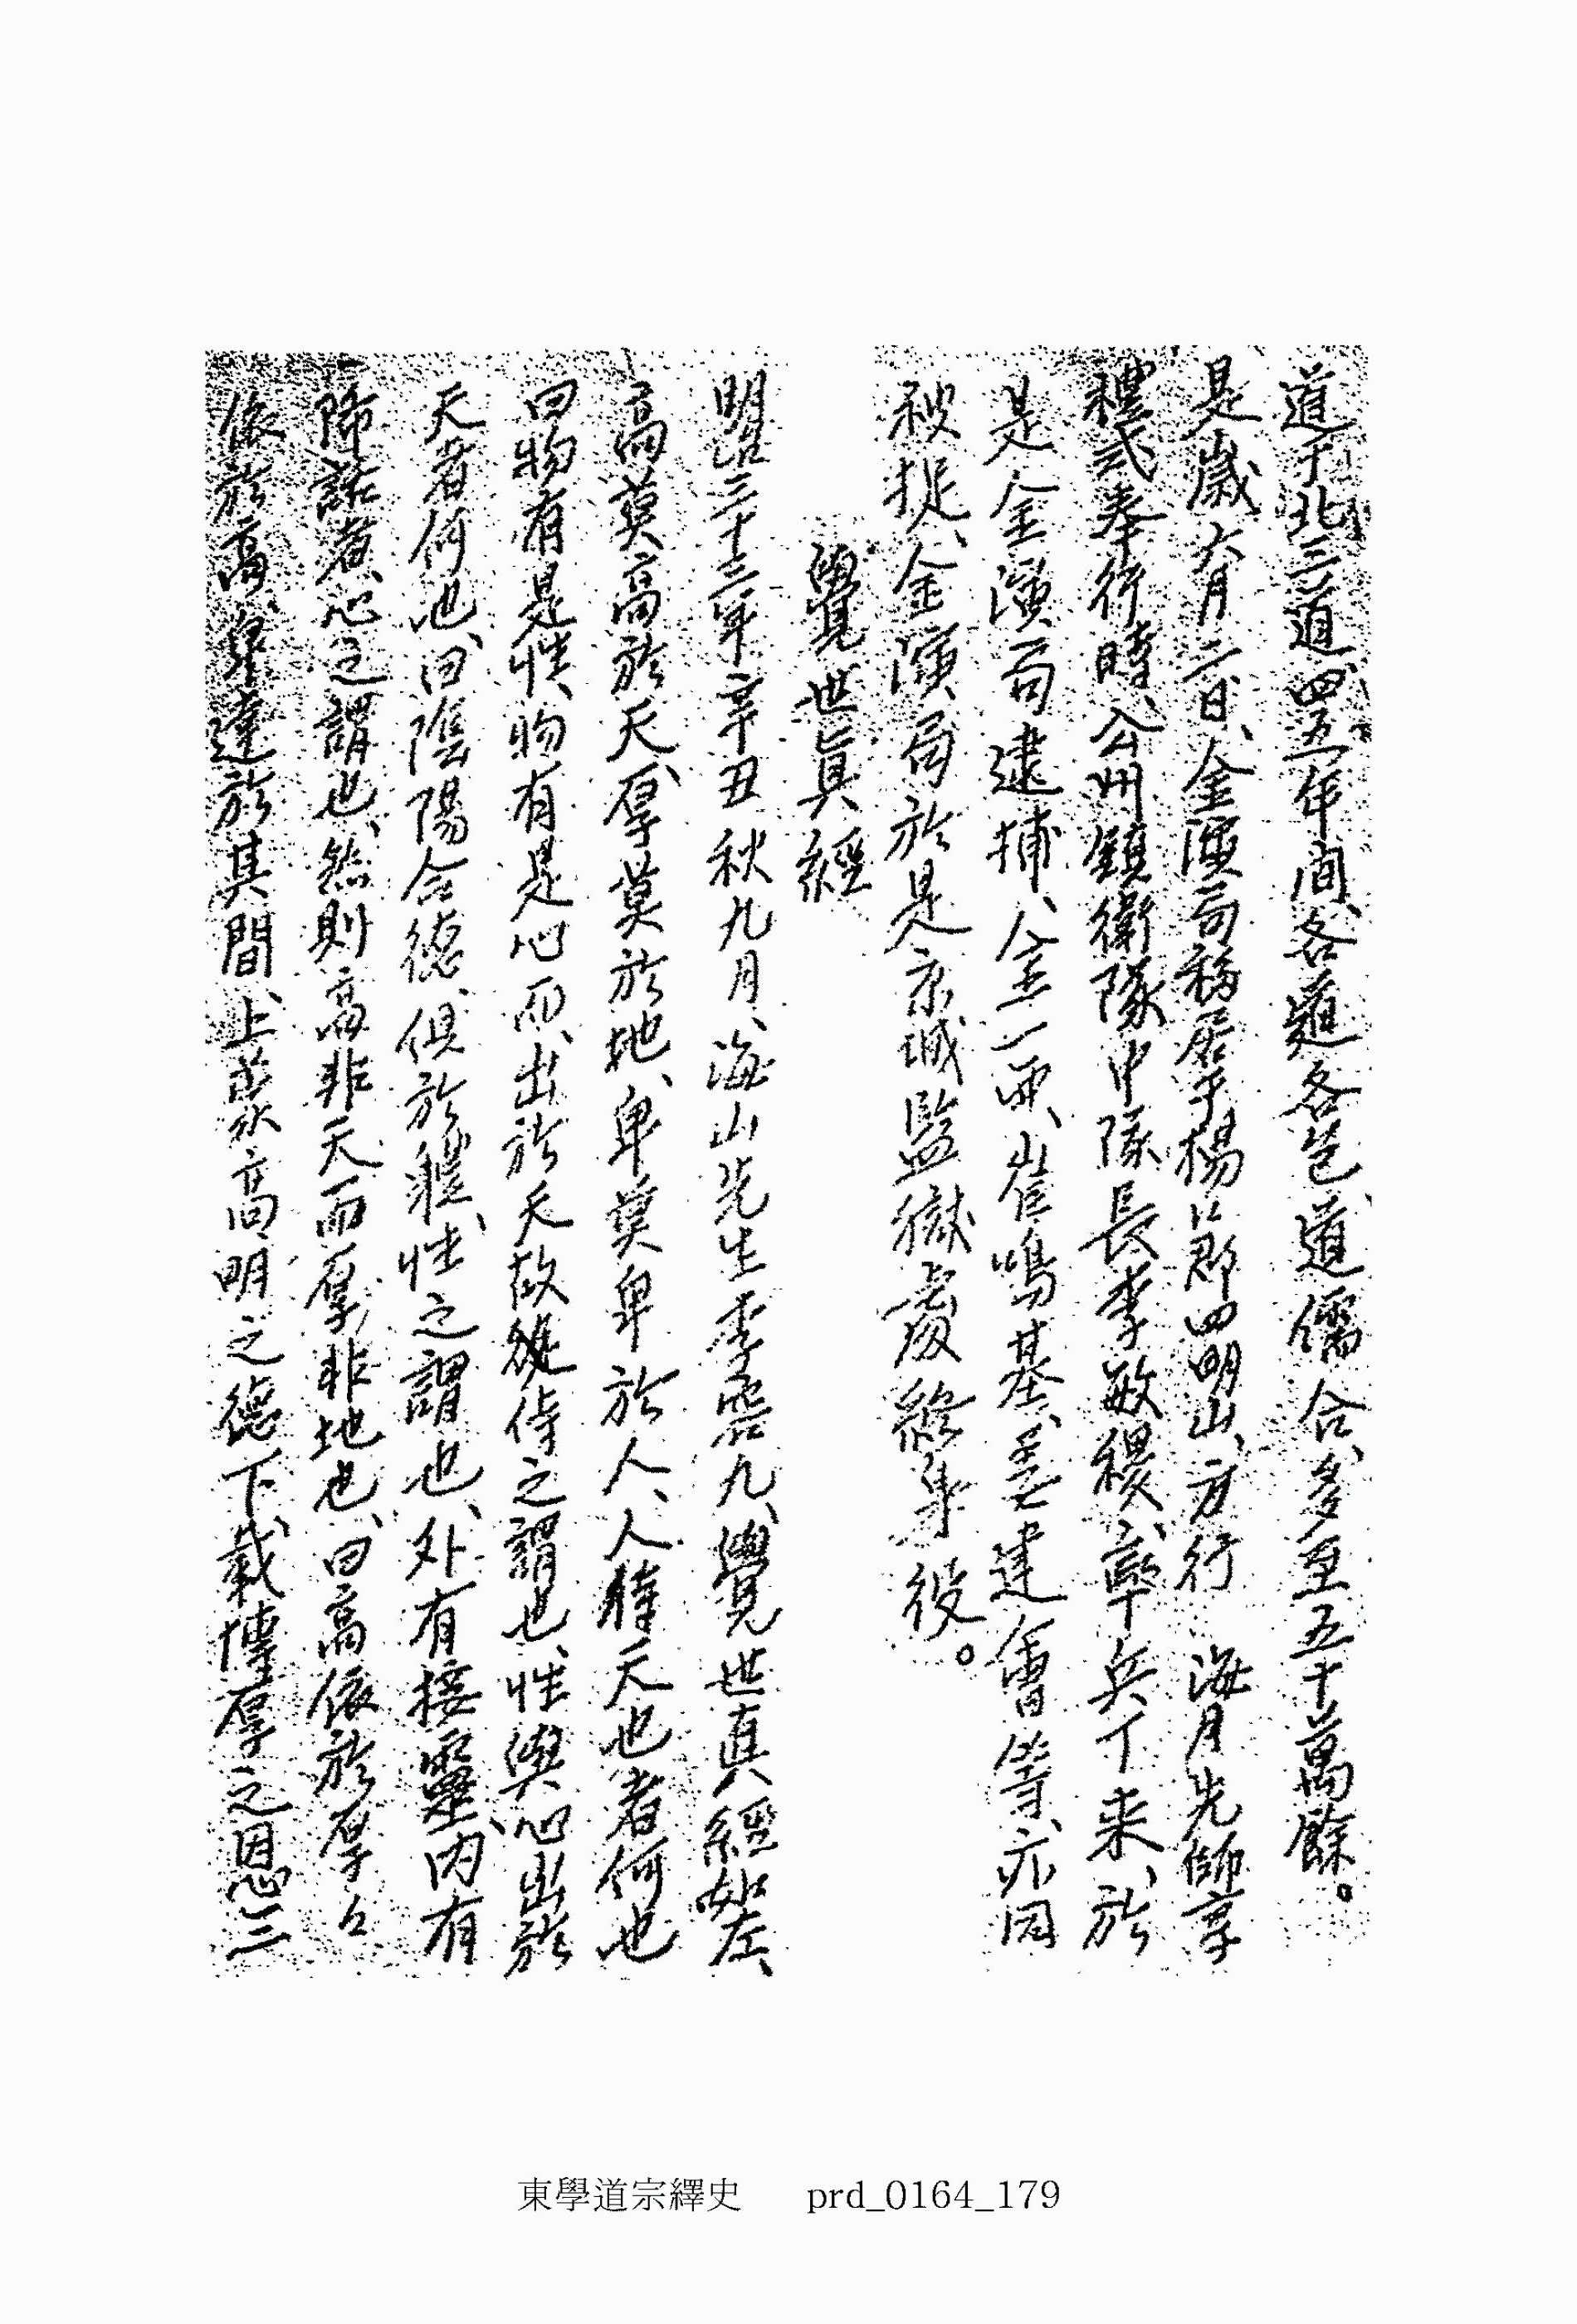 道于北三道、四五年间、各道各邑、道儒合、多至五十萬餘。
是歲六月二日、金演局移居于楊口郡四明山、方行 海月先師享
禮式奉行時、公州鎮衛隊中隊長李敏稷、率兵丁来、於
是金演局逮捕、金一西、崔鳴基、姜建會等、亦同
被捉、金演局於是京城監獄處終身役。
覺世眞經
明治三十三年辛丑秋九月、海山先生李雲九、覺世真經如左、
高莫高於天、厚莫於地、卑莫卑於人、人侍天也者何也
曰物有是性、物有是心而、出於天故、從侍之謂也、性與心出於
天者何也、曰陰陽合德、俱於軆、性之謂也、外有接靈、内有
降話者、心之謂也、然則高非天而厚非地也、曰高依於厚々
依於高、卑達於其間、上蒙高明之德、下載博厚之恩、三
東學道宗繹史 prd_0164_179